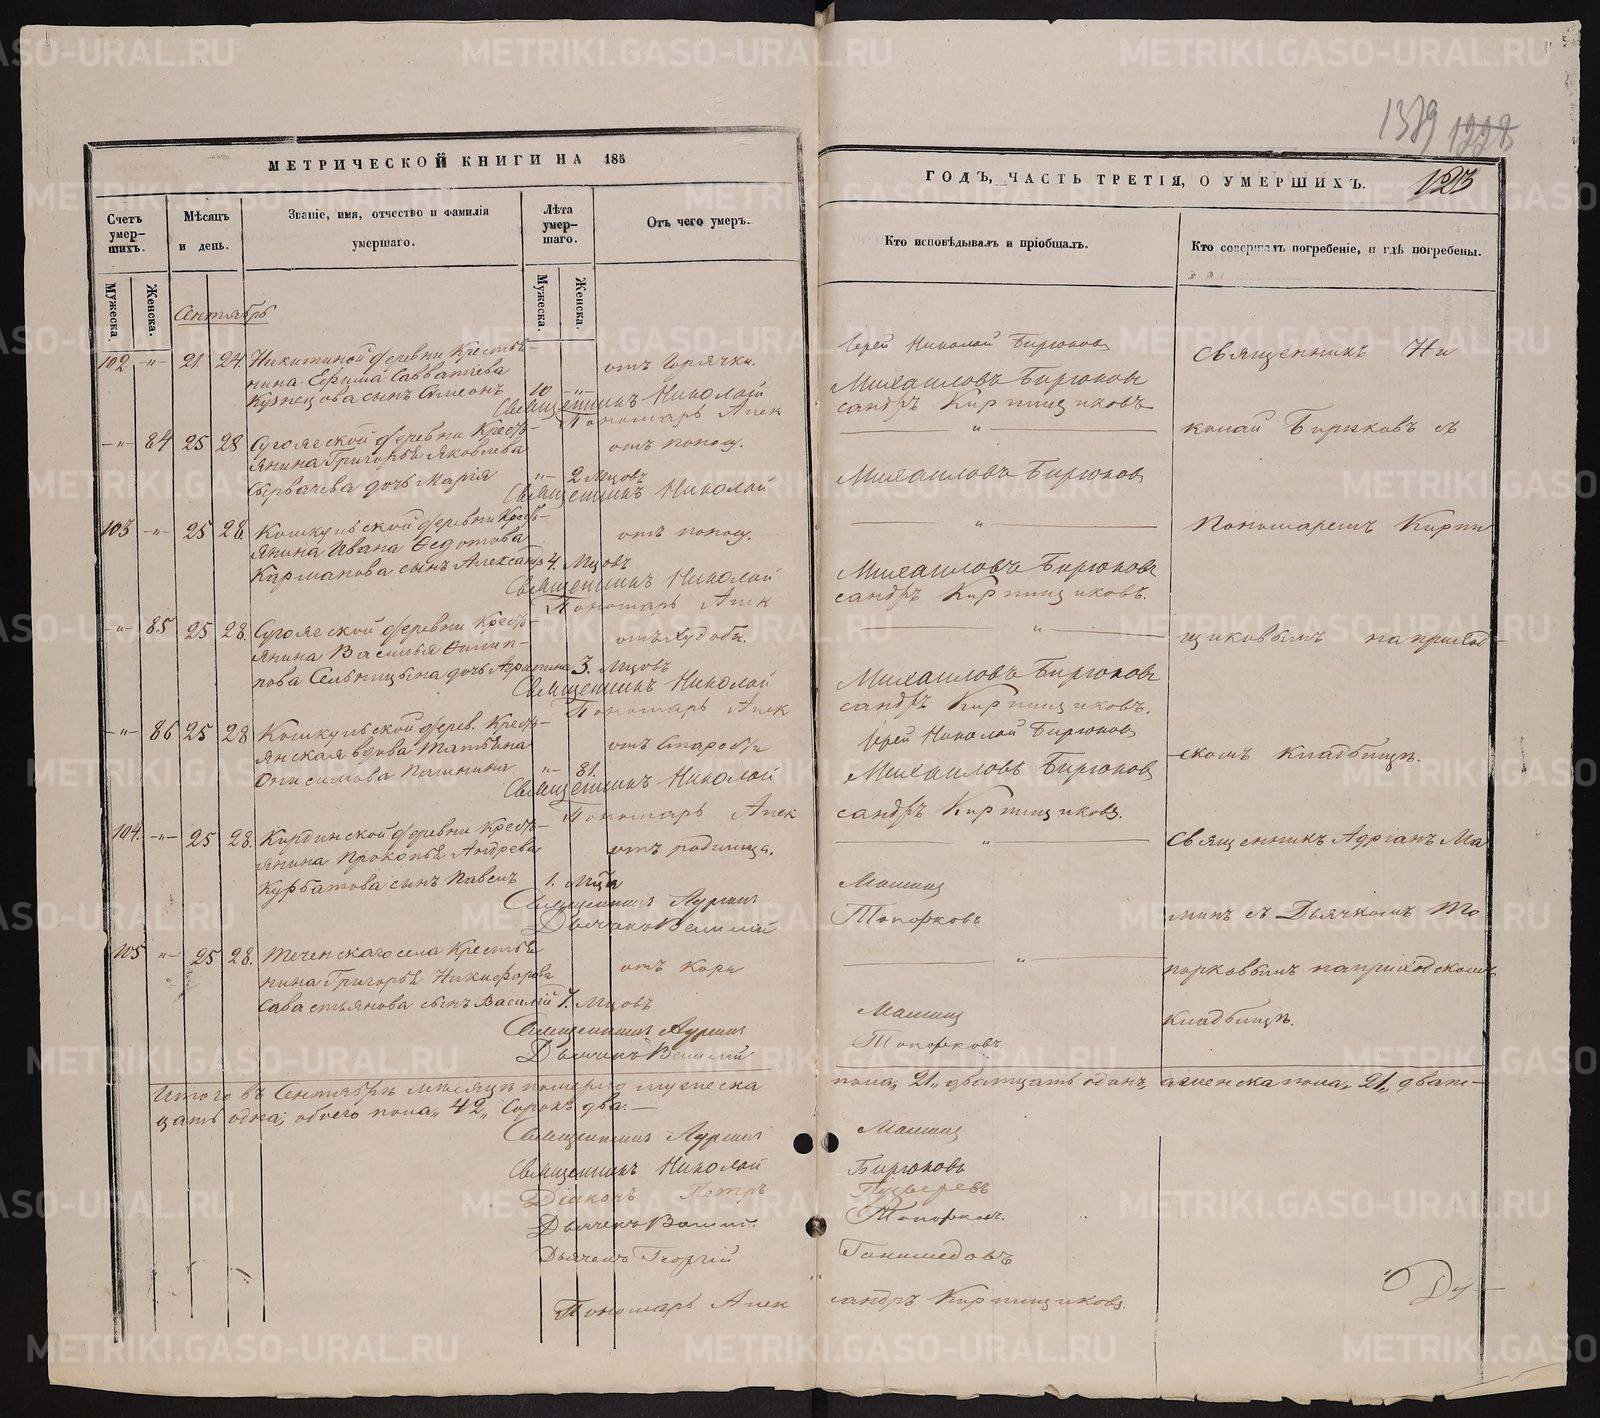 1389 1228
МЕТРИЧЕСКОЙ КНИГИ НА 185
ГОДЪ, ЧАСТЬ ТРЕТІЯ, О УМЕРШИХЪ.
123
Счетъ умер-
шихъ.
Мѣсяцъ
и день.
Званіе, имя, отчество и фамилія
умершаго.
Лѣта
умер-
шаго.
Отъ чего умеръ.
Кто исповѣдывалъ и пріобщалъ.
Кто совершалъ погребеніе, и гдѣ погребены.
Мужеска.
Женска.
Мужеска.
Женска.
Сентябрь
102 -"- 21. 24. Никитиной деревни Крестья-
нина Ефима Савватѣева
Кузнецова сынъ Симеонъ 10 -"-
отъ Горячки.
Іерей Николай Бирюковъ
Священникъ Николай Михаиловъ Бирюковъ
Пономарь Александръ Кирпищиковъ
-"- 84 25 28 Сугоякской деревни Кресть-
янина Григорья Яковлева
Сырвачева дочь Марія -"- 2 Мцовъ
отъ поносу.
Священникъ Николай Михаиловъ Бирюковъ
103 -"- 25 28. Кошкульской деревни Кресть-
янина Ивана Ѳедотова
Карманова сынъ Александръ 4. Мцовъ
отъ поносу.
Священникъ Николай Михаиловъ Бирюковъ
Пономарь Александръ Кирпищиковъ.
-"- 85 25 28. Сугоякской деревни Кресть-
янина Василья Филип-
пова Сельницына дочь Агрипина 3. Мцовъ
отъ худобы.
Священникъ Николай Михаиловъ Бирюковъ
Пономарь Александръ Кирпищиковъ.
-"- 86 25 28 Кошкульской дерев. Кресть-
янская вдова Татьяна
Онисимова -"- 81.
отъ Старости
Іерей Николай Бирюковъ
Священникъ Николай Михаиловъ Бирюковъ
Пономарь Александръ Кирпищиковъ.
Священникъ Ни
колай Бирюковъ съ
Пономаремъ Кирпи
щиковымъ на приход-
скомъ кладбищѣ.
104. -"- 25 28. Кирдинской деревни Кресть-
янина Прокопья Андреева
Курбатова сынъ Павелъ 1. Мцъ
отъ родимца.
Священникъ Адріанъ Маминъ
Дьячекъ Василій Топорковъ
105 -"- 25 28. Теченскаго села Крестья-
нина Григорья Никифорова
Савастьянова сынъ Василій 7. Мцовъ
отъ кори
Священникъ Адріанъ Маминъ
Дьячекъ Василій Топорковъ
Священникъ Адріанъ Ма
минъ съ Дьячкомъ То
порковымъ на приходскомъ
кладбищѣ.
Итого въ Сентябрѣ мѣсяцѣ померло мужеска пола „21„ дватцать одинъ, а женска пола „21„ дват-
цать одна; обоего пола „42„ Сорокъ два.-
Священникъ Адріанъ Маминъ
Священникъ Николай Бирюковъ
Діаконъ Петръ
Дьячекъ Василій Топорковъ.
Дьячекъ Георгій
Пономарь Александръ Кирпищиковъ.
METRIKI.GASO-URAL.RU